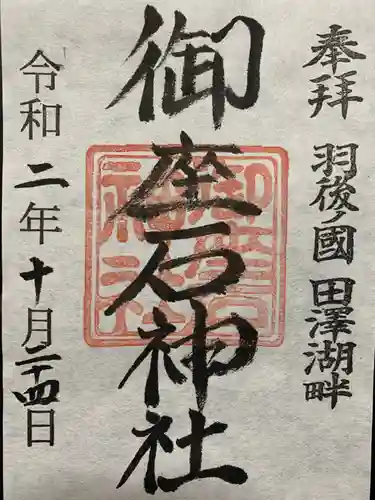 奉拝 羽後ノ國 田澤湖畔
御座石神社
令和二年十月二十四日